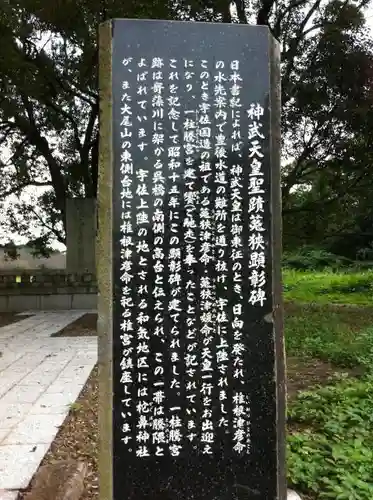 神武天皇聖蹟菟狭顕彰碑
日本書紀によれば、神武天皇は御東征のとき、日向を発られ、椎根津彦命
の水先案内で豊後水道の難所を通り抜け、宇佐に上陸されました。
このとき宇佐国造の祖である菟狭津彦命・菟狭津媛命が天皇一行をお出迎え
になり、一柱騰宮を建て饗（ご馳走）を奉ったことなどが記されています。
これを記念して昭和十五年にこの顕彰碑が建てられました。一柱騰宮
跡は寄藻川に架かる呉橋の南側の高台と伝えられ、この一帯は騰隈と
よばれています。宇佐上陸の地とされる和気地区には柁鼻神社
が、また大尾山の東側台地には椎根津彦命を祀る椎宮が鎮座しています。